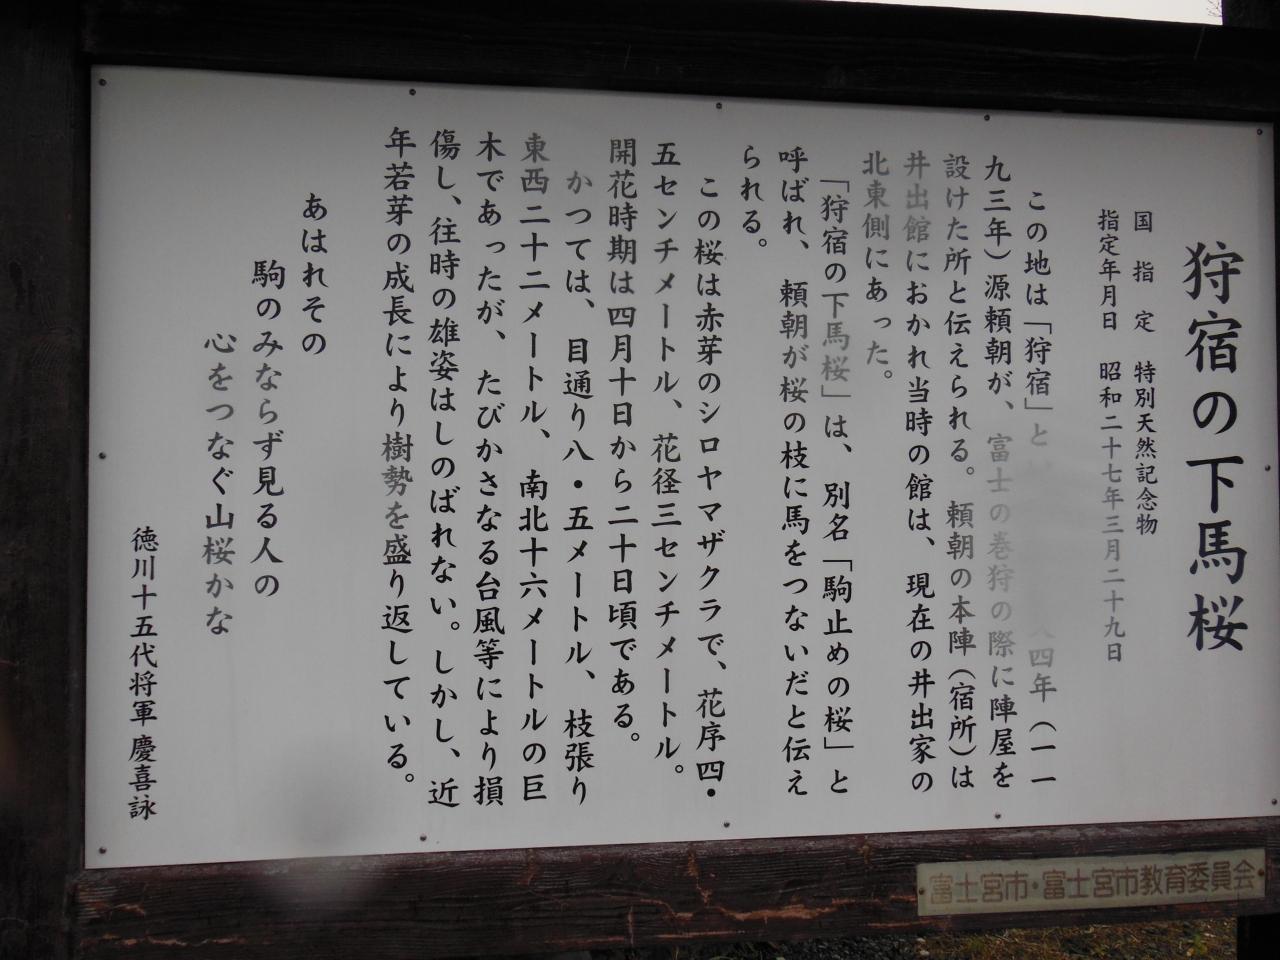 狩宿の下馬桜
国指定 特別天然記念物
指定年月日 昭和二十七年三月二十九日
この地は「狩宿」と 四年（一一
九三年）源頼朝が、富士の巻狩の際に陣屋を
設けた所と伝えられる。頼朝の本陣（宿所）は
井出館におかれ当時の館は、現在の井出家の
北東側にあった。
「狩宿の下馬桜」は、別名「駒止めの桜」と
呼ばれ、頼朝が桜の枝に馬をつないだと伝え
られる。
この桜は赤芽のシロヤマザクラで、花序四・
五センチメートル、花径三センチメートル。
開花時期は四月十日から二十日頃である。
かつては、目通り八・五メートル、枝張り
東西二十二メートル、南北十六メートルの巨
木であったが、たびかさなる台風等により損
傷し、往時の雄姿はしのばれない。しかし、近
年若芽の成長により樹勢を盛り返している。
あはれその
駒のみならず見る人の
心をつなぐ山桜かな
徳川十五代将軍 慶喜詠
富士宮市・富士宮市教育委員会